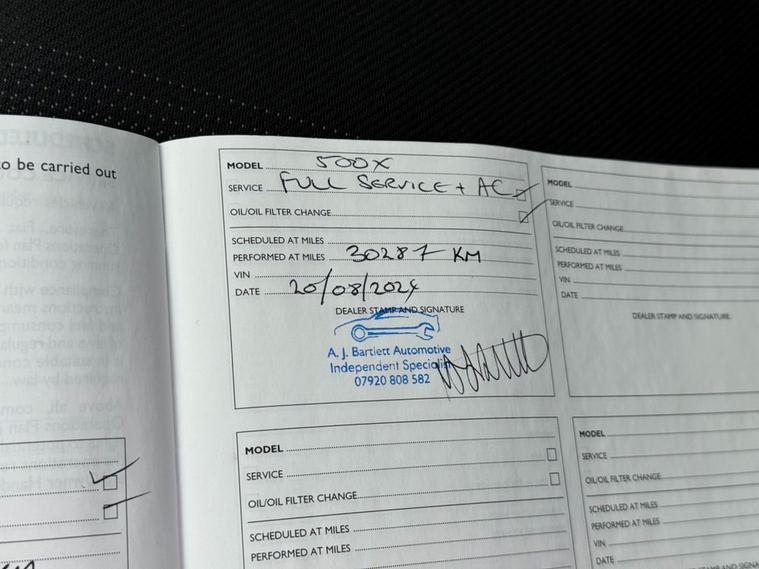 to be carried out
MODEL 500X
SERVICE FULL SERVICE + AC
OIL/OIL FILTER CHANGE
SCHEDULED AT MILES
PERFORMED AT MILES 30287 KM
VIN
DATE 20/08/2024
DEALER STAMP AND SIGNATURE
A. J. Bartlett Automotive
Independent Specialist
07920 808 582
MODEL
SERVICE
OIL/OIL FILTER CHANGE
SCHEDULED AT MILES
PERFORMED AT MILES
VIN
DATE
DEALER STAMP AND SIGNATURE
MODEL
SERVICE
OIL/OIL FILTER CHANGE
SCHEDULED AT MILES
PERFORMED AT MILES
MODEL
SERVICE
OIL/OIL FILTER CHANGE
SCHEDULED AT MILES
PERFORMED AT MILES
VIN
DATE